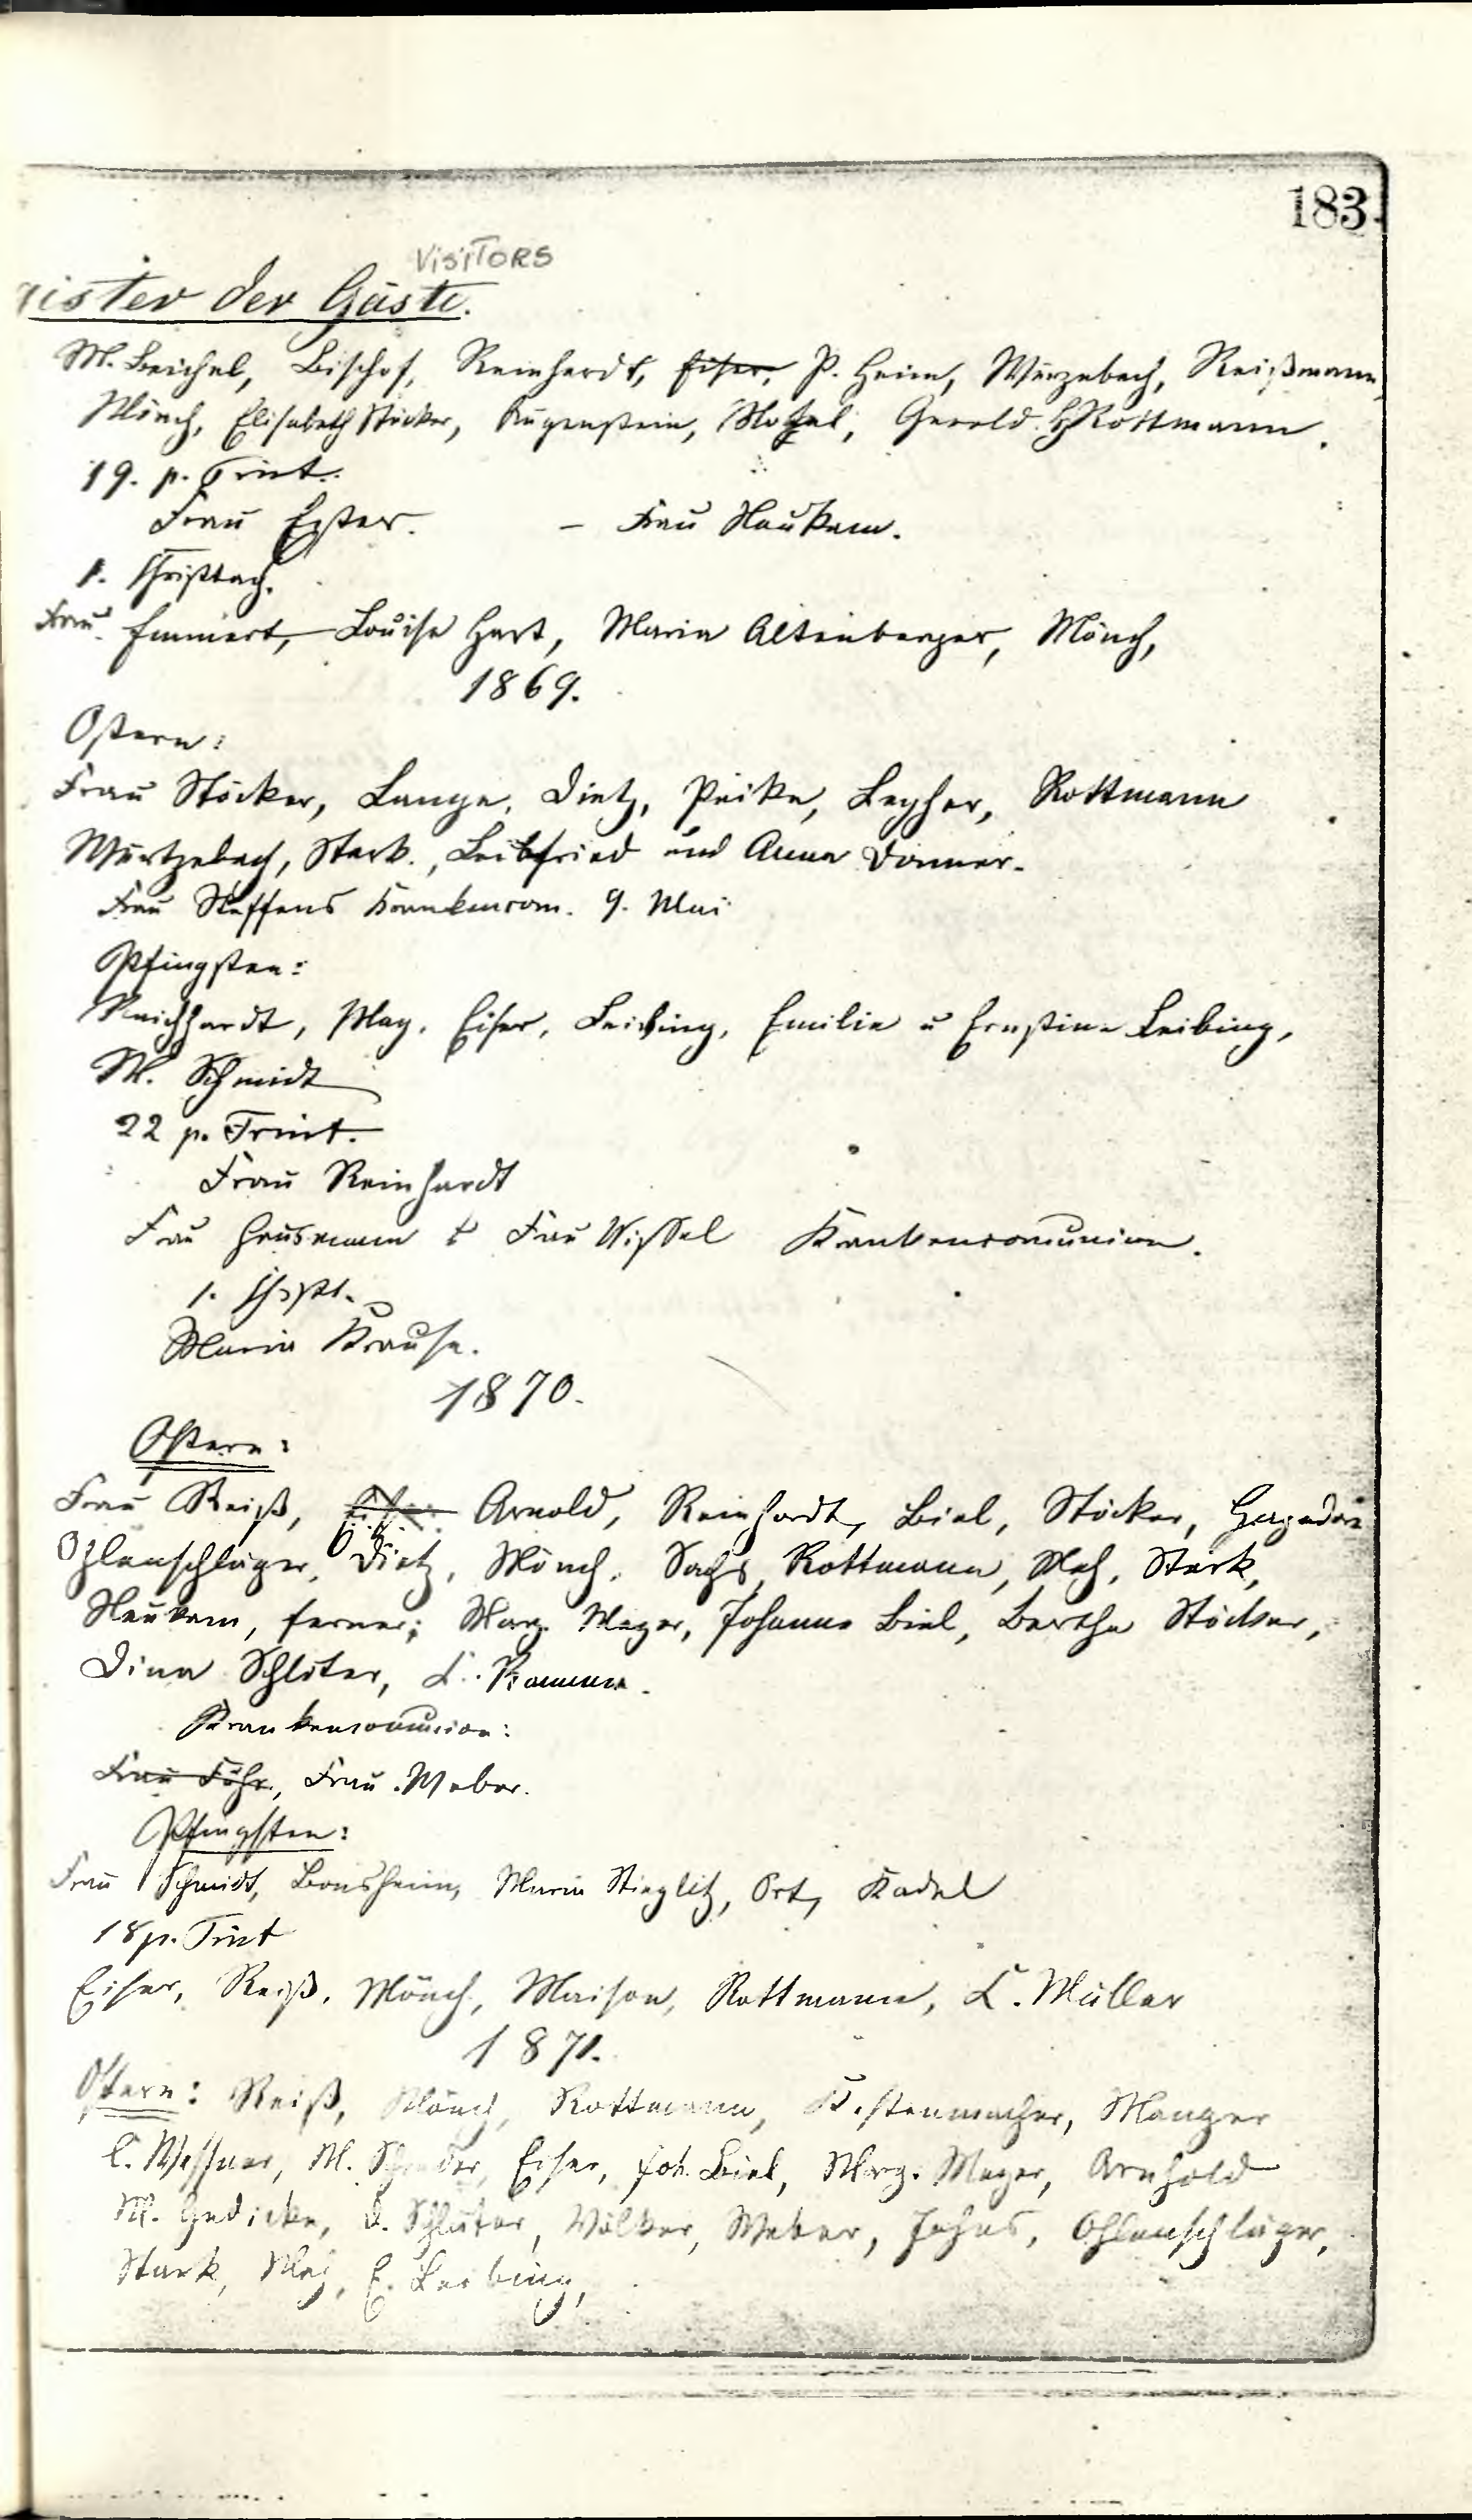 183.
VISITORS
ister der Gäste.
M. Beichel, Bischof, Reinhardt, Eiser, P. Heim, Würzebach, Reißmann,
Mönch, Elisabeth Stöcker, Augenstein, Gerold. Rottmann.
19. p. Trint.
Frau Ester. – Frau Neukam.
1. Christtag.
Frau Emmert, Louise Hart, Maria Altenberger, Mönch,
1869.
Ostern:
Frau Stöcker, Lange, Dietz, Peike, Rottmann
Würtzebach, Stark., Leibfried und Anna Donner.
Frau Steffens Krankencom. 9. Mai
Pfingsten:
Reichhardt, May, Eiser, Leibing, Emilie u Ernstine Leibing,
M. Schmidt
22 p. Trint.
Frau Reinhardt
Frau Hausmann & Frau Wissel Krankencomunion.
1. Christ.
Maria Krause.
1870.
Ostern:
Frau Reiß, Eiser Arnold, Reinhardt, Biel, Stöcker,
Ohlenschläger, Dietz, Mönch, Sachs, Rottmann, May, Stark,
Neukam, ferner: Marg. Mayer, Johanna Biel, Bertha Stöcker,
Dina Schlüter, L. Kammer.
Krankencomunion:
Frau Föhr, Frau Weber.
Pfingsten:
Frau Schmidt, Bonsheim, Maria Stieglitz, Ort, Kadel
18 p. Trint
Eiser, Reiß, Mönch, Maison, Rottmann, L. Müller
1871.
Ostern: Reiß, Mönch, Rottmann, Manger
C. Messner, M. Eiser, Joh. Biel, Marg. Mayer, Arnhold
M. Gedicke, D. Schlüter, Völker, Weber, Jahns, Ohlenschläger,
Stark, May, E. Leibing,